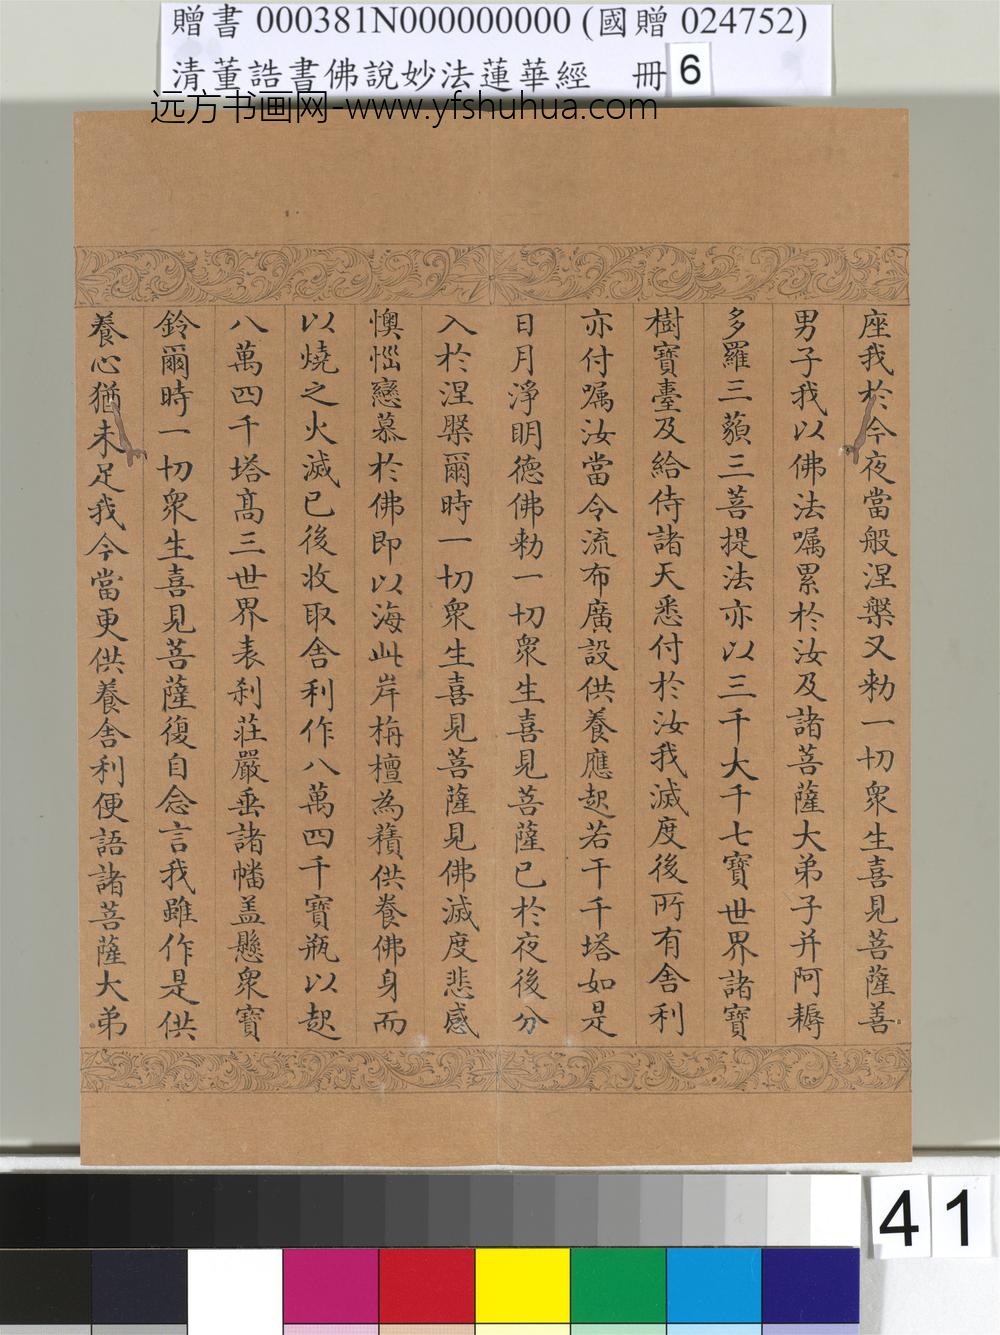 贈書 000381N000000000 (國贈 024752)
清董誥書佛說妙法蓮華經 冊 6
远方书画网-www.yfshuhua.com
座我於今夜當般涅槃又勑一切眾生喜見菩薩善
男子我以佛法嘱累於汝及諸菩薩大弟子并阿耨
多羅三藐三菩提法亦以三千大千七寶世界諸寶
樹寶臺及給侍諸天悉付於汝我滅度後所有舍利
亦付嘱汝當令流布廣設供養應起若干千塔如是
日月淨明德佛勑一切眾生喜見菩薩已於夜後分
入於涅槃爾時一切眾生喜見菩薩見佛滅度悲感
懊惱戀慕於佛即以海此岸栴檀為𧂐供養佛身而
以燒之火滅已後收取舍利作八萬四千寶瓶以起
八萬四千塔高三世界表刹莊嚴垂諸幡盖懸眾寶
鈴爾時一切眾生喜見菩薩復自念言我雖作是供
養心猶未足我今當更供養舍利便語諸菩薩大弟
41